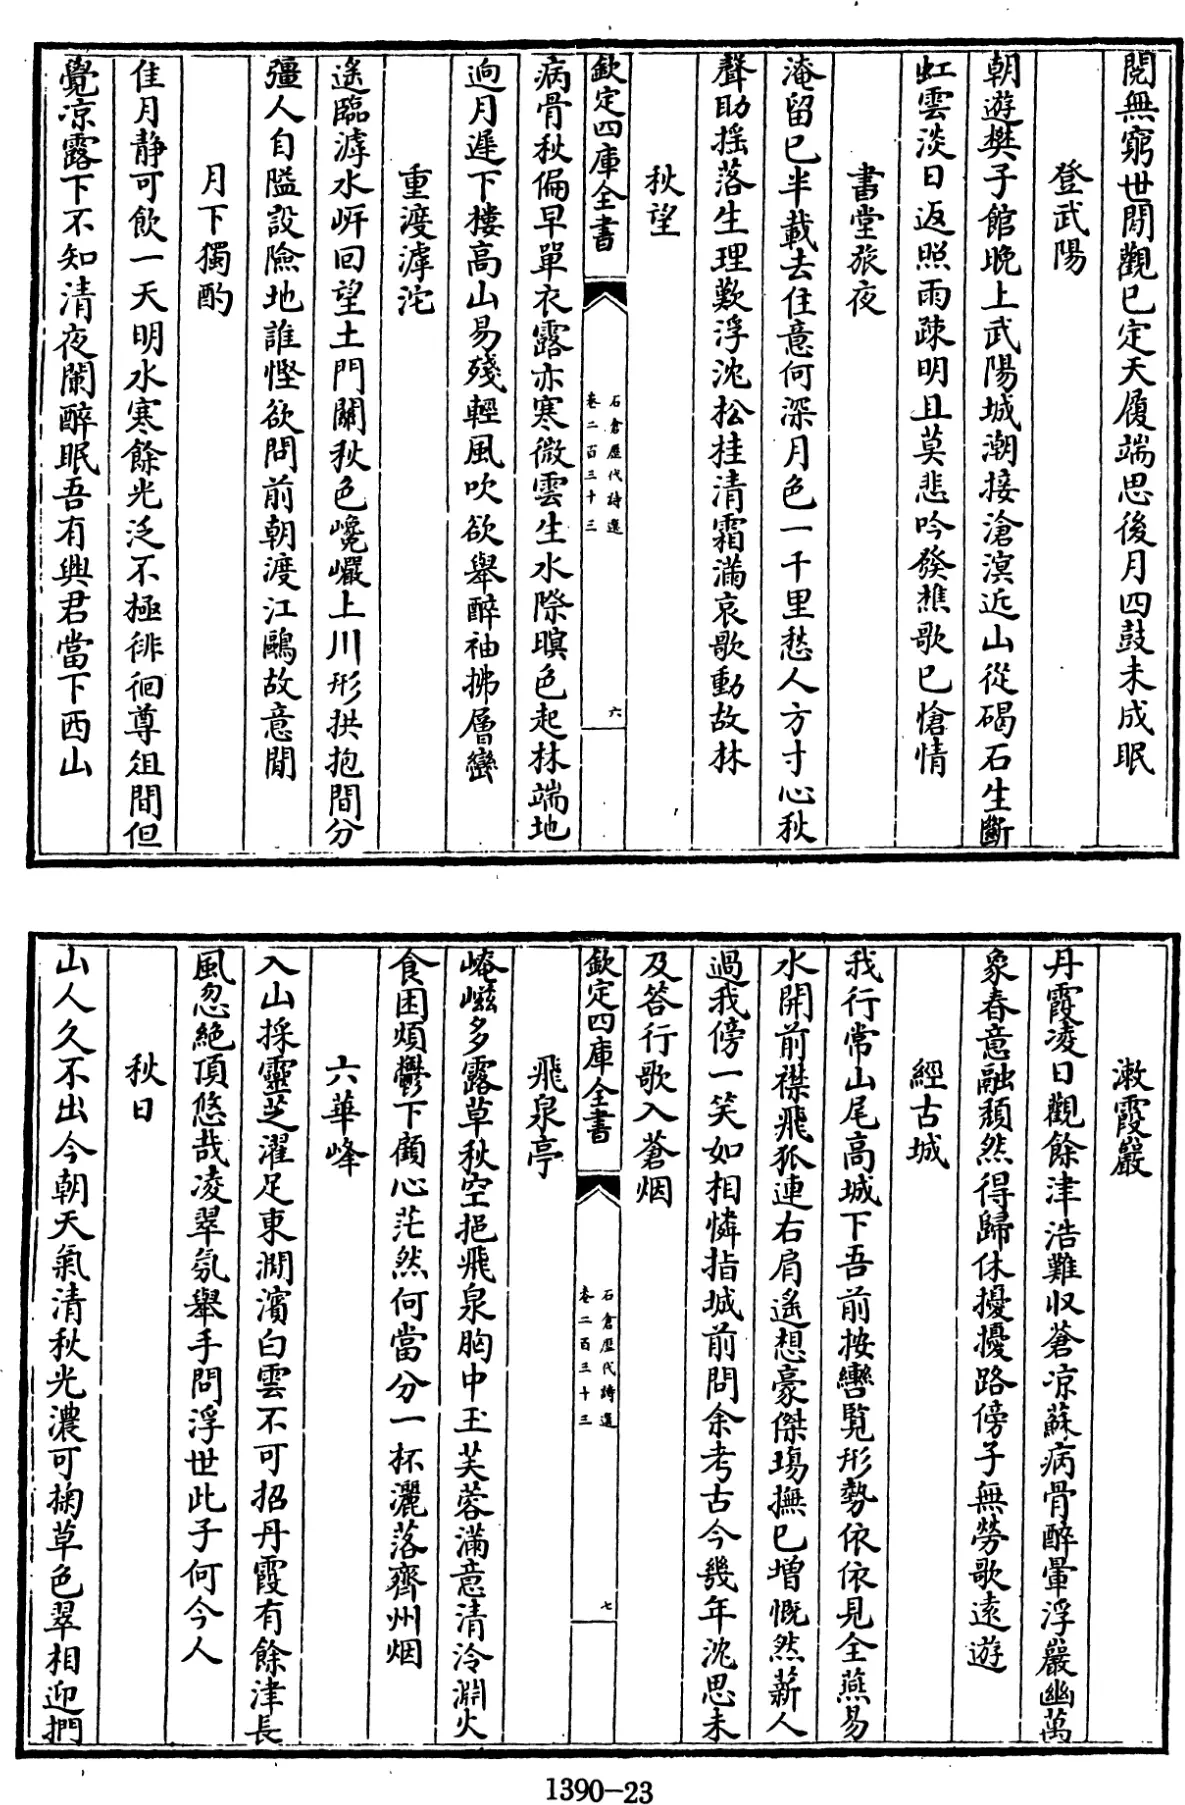 閱無窮世間觀已定天履端思後月四鼓未成眠
登武陽
朝遊樊子館晚上武陽城潮接滄溟近山從碣石生斷
虹雲淡日返照雨疎明且莫悲吟發樵歌已愴情
書堂旅夜
淹留已半載去住意何深月色一千里愁人方寸心秋
聲助揺落生理歎浮沈松桂清霜滿哀歌動故林
秋望
欽定四庫全書
石倉歴代詩選
卷二百三十三
六
病骨秋偏早單衣露亦寒微雲生水際暝色起林端地
逈月遲下樓高山易殘輕風吹欲舉醉袖拂層巒
重渡滹沱
遙臨滹水岍回望土門關秋色巉巖上川形拱抱間分
彊人自隘設險地誰慳欲問前朝渡江鷗故意閒
月下獨酌
佳月静可飲一天明水寒餘光泛不極徘徊尊俎間但
覺凉露下不知清夜闌醉眠吾有興君當下西山
漱霞巖
丹霞凌日觀餘津浩難収蒼凉蘇病骨醉暈浮巖幽萬
象春意融頽然得歸休擾擾路傍子無勞歌遠遊
經古城
我行常山尾高城下吾前按轡覧形勢依依見全燕易
水開前襟飛狐連右肩遙想豪傑塲撫已増慨然薪人
過我傍一笑如相憐指城前問余考古今幾年沈思未
及答行歌入蒼烟
欽定四庫全書
石倉歴代詩選
卷二百三十三
七
飛泉亭
崦嵫多露草秋空挹飛泉胸中玉芙蓉滿意清泠淵火
食困煩鬱下顧心茫然何當分一杯灑落齊州烟
六華峰
入山採靈芝濯足東澗濱白雲不可招丹霞有餘津長
風忽絶頂悠哉凌翠氛舉手問浮世此子何今人
秋日
山人久不出今朝天氣清秋光濃可掬草色翠相迎捫
1390-23